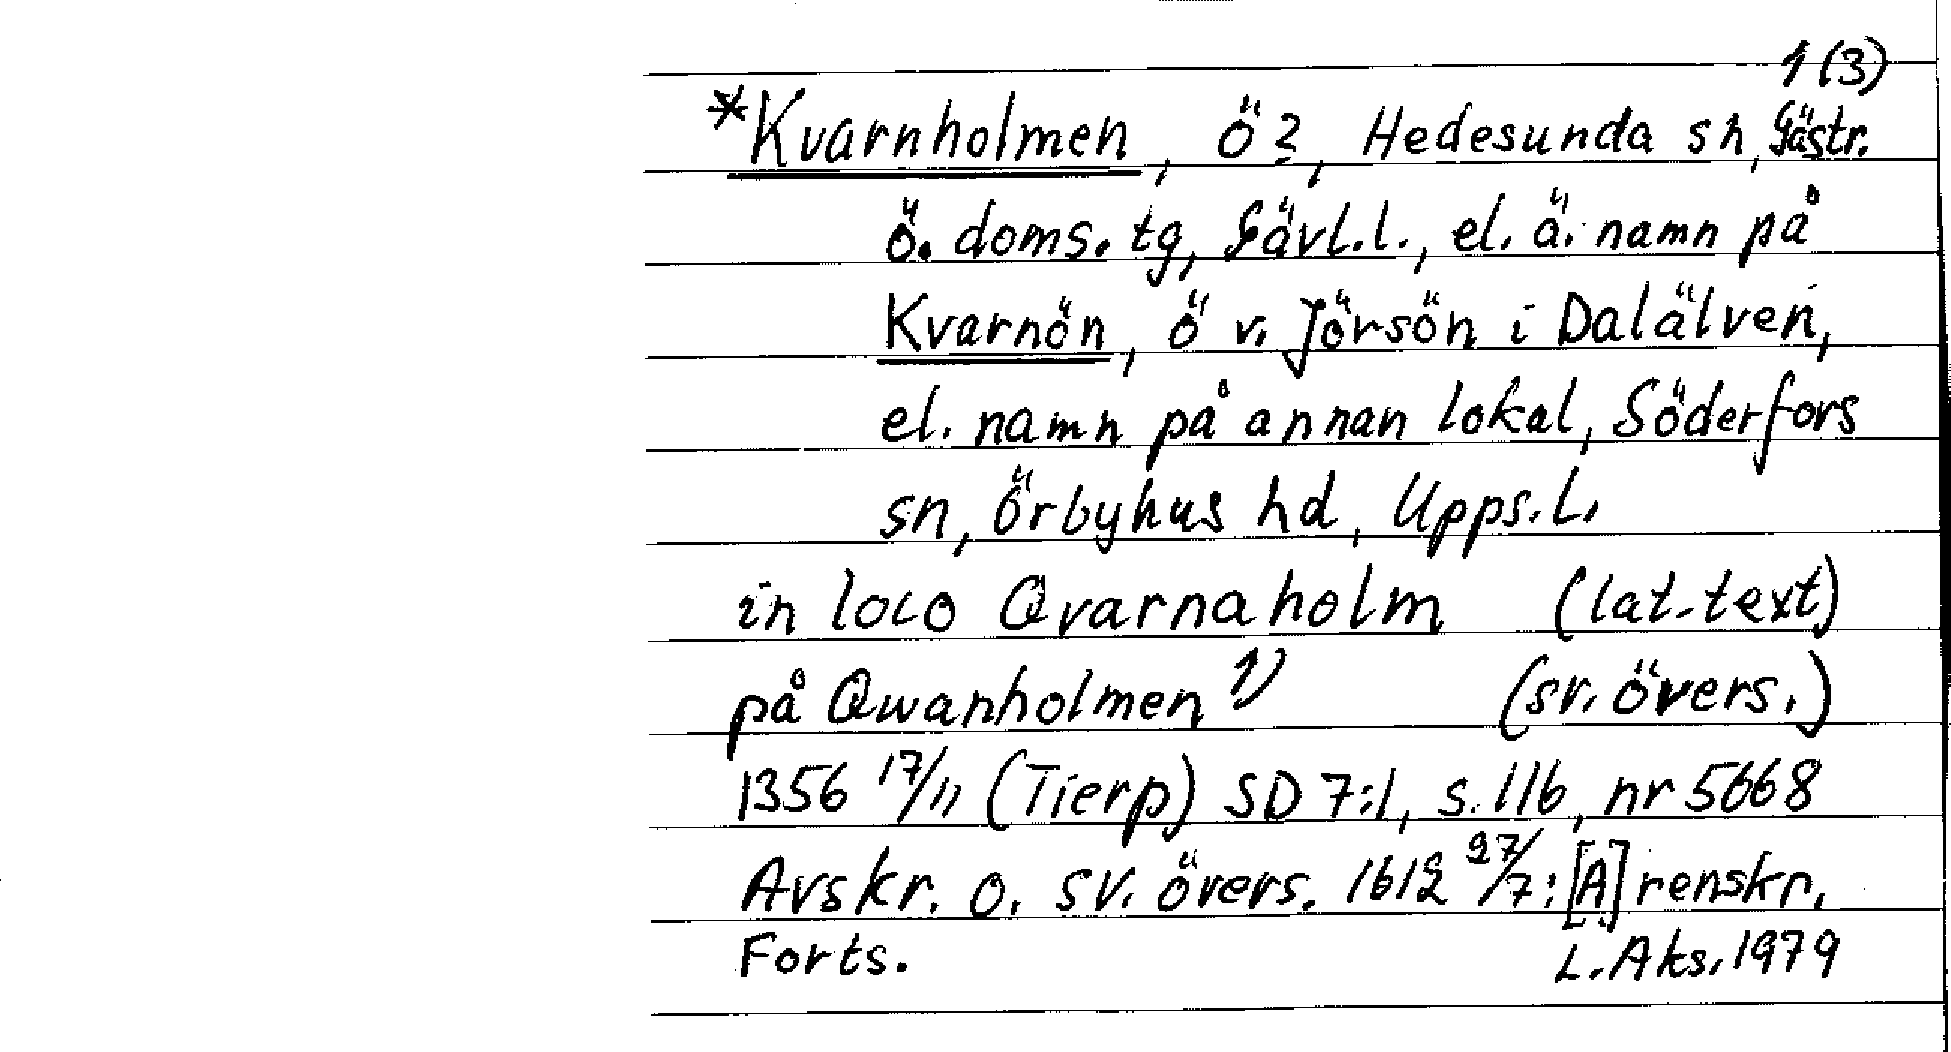 1(3)
*Kvarnholmen, ö?, Hedesunda sn, Gästr.
ö. doms. tg, Gävl.l., el. ä. namn på
Kvarnön, ö v. Jörsön i Dalälven,
el. namn på annan lokal, Söderfors
sn, Örbyhus hd, Upps.l.
in loco Qvarnaholm (lat. text)
på Qwanholmen 1) (sv. övers.)
1356 17/11 (Tierp) SD 7:1, s. 116, nr 5668
Avskr. o. sv. övers. 1612 27/7: [A] renskr.
Forts. L. Aks. 1979